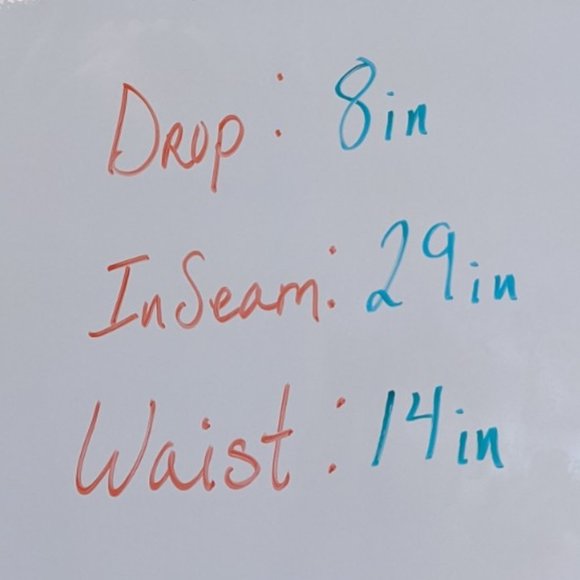 Drop: 8in
InSeam: 29in
Waist: 14in